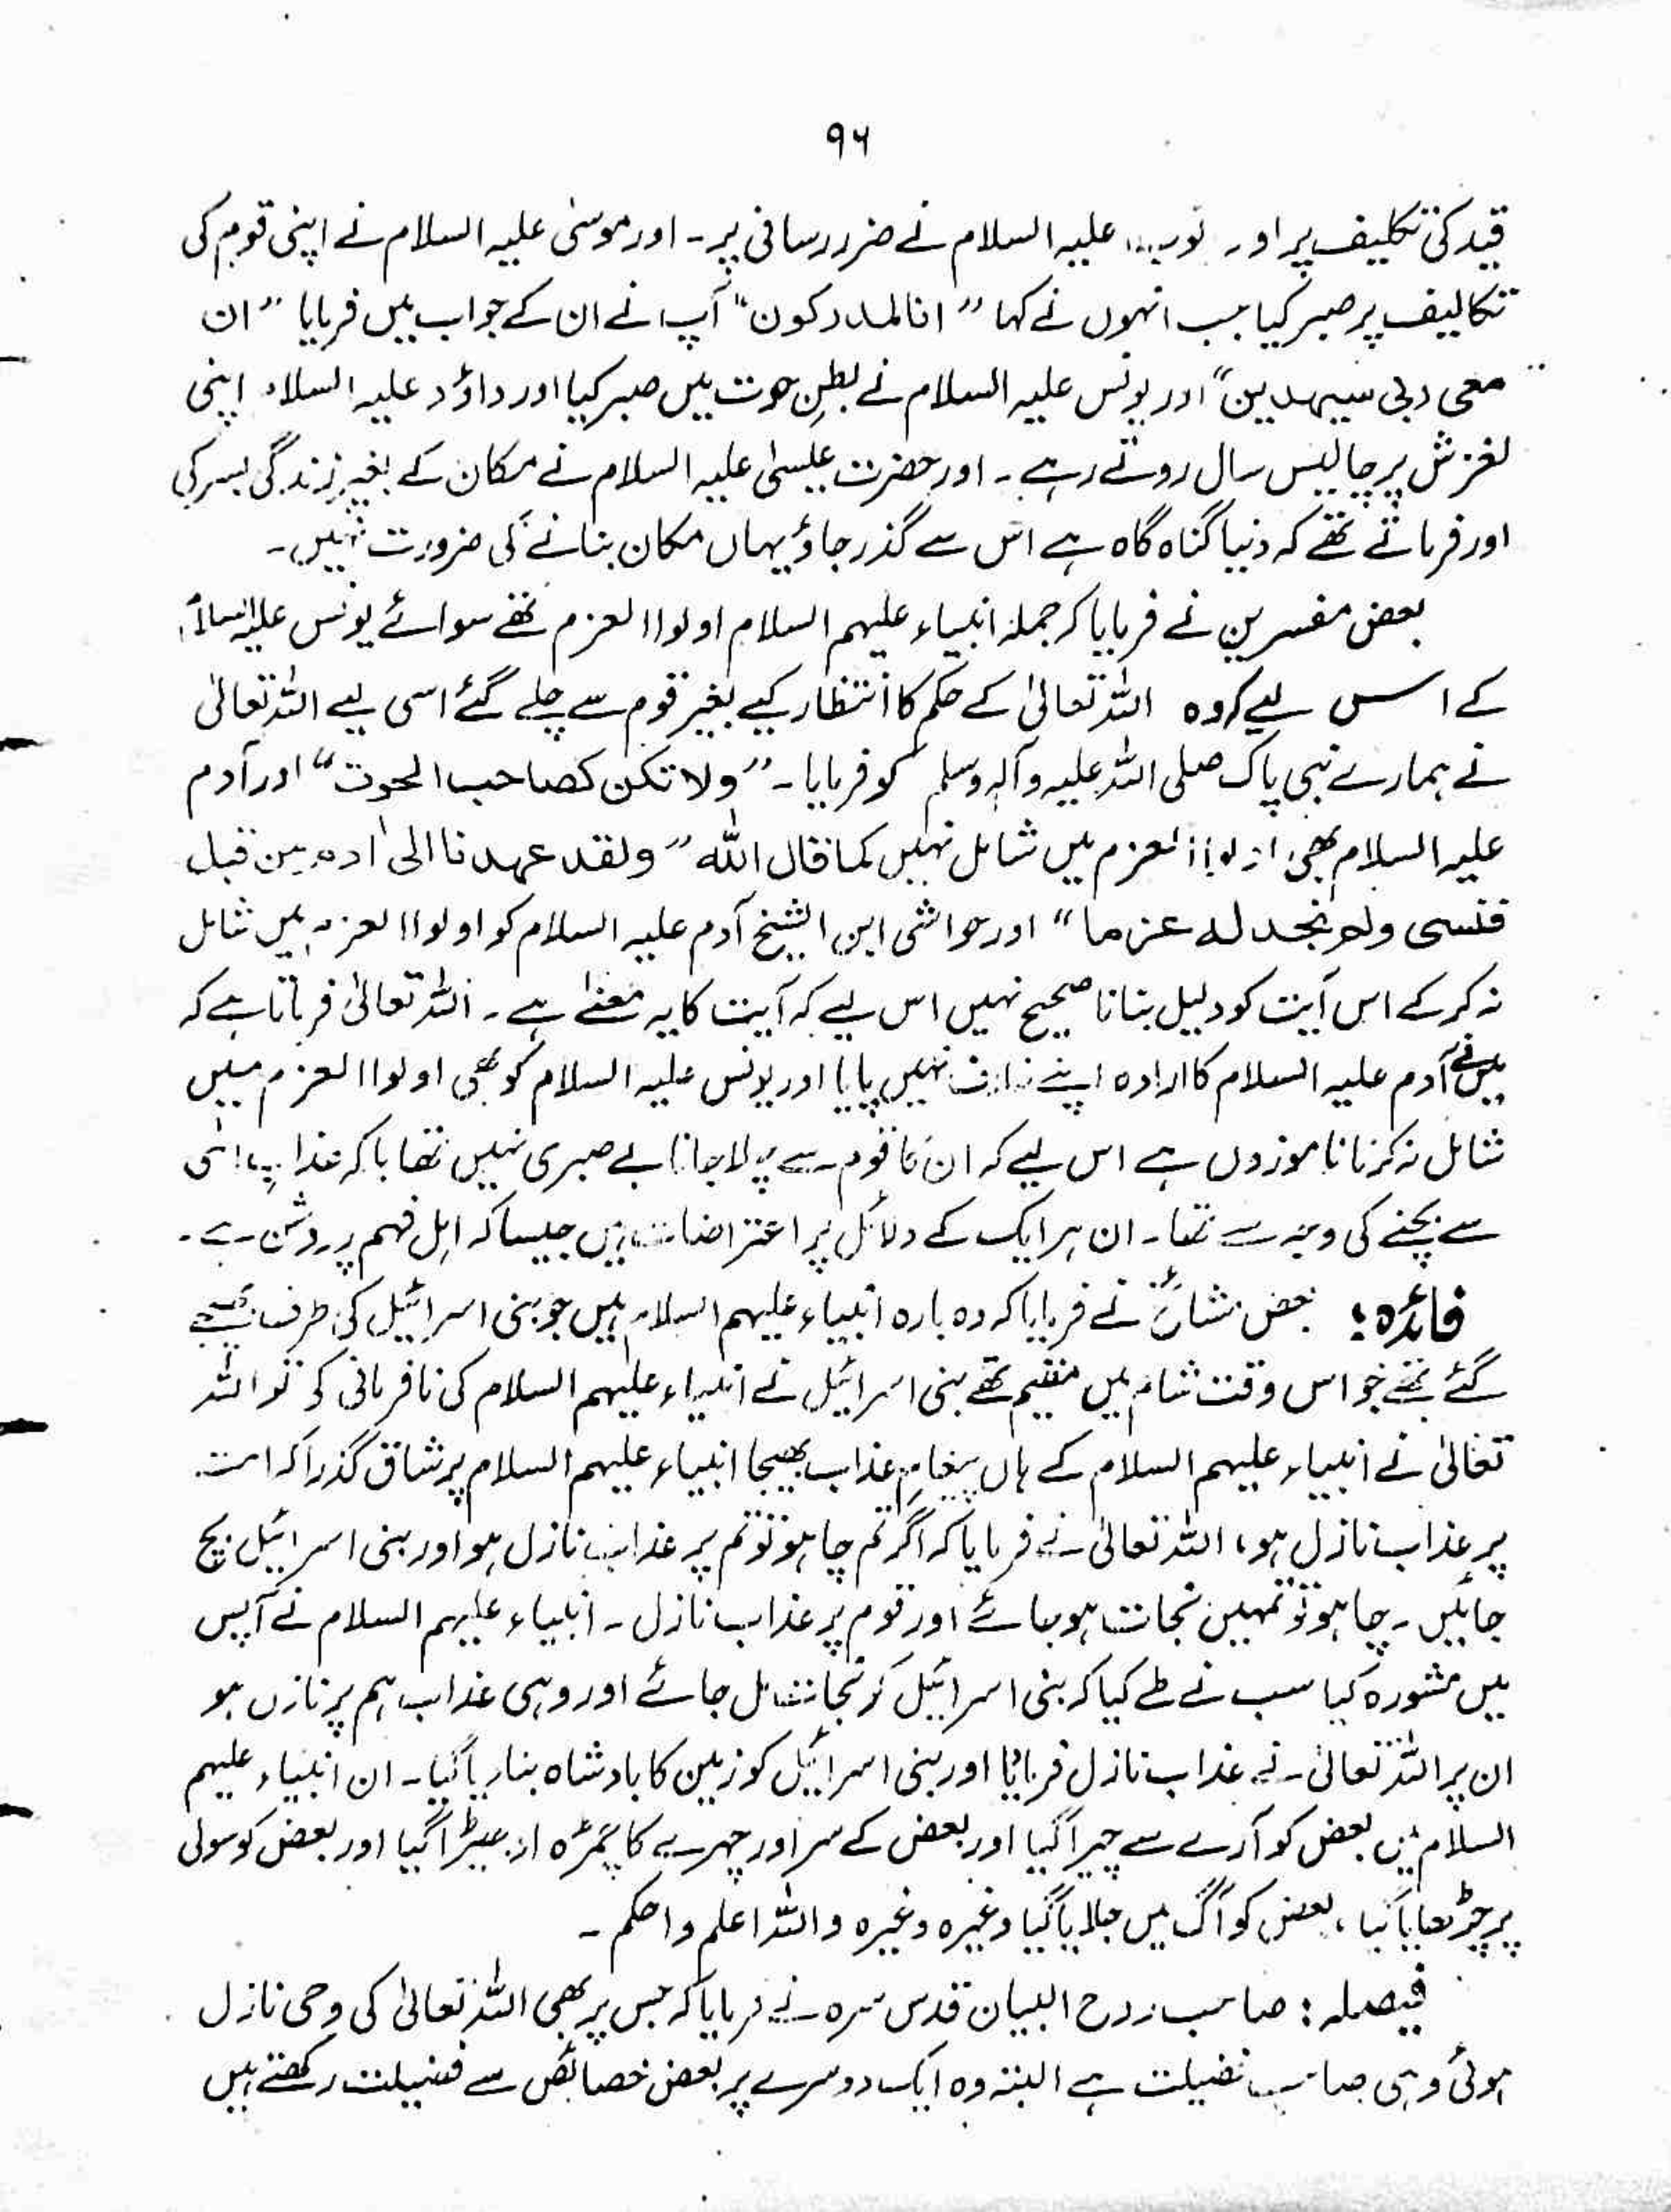 ۹۶
قید کی تکلیف پر اور علیہ السلام نے ضرر رسانی پر۔ اور موسیٰ علیہ السلام نے اپنی قوم کی
تکالیف پر صبر کیا جب انہوں نے کہا ”انا لمدرکون“ آپ نے ان کے جواب میں فرمایا ”ان
معی ربی سیہدین“ اور یونس علیہ السلام نے بطنِ حوت میں صبر کیا اور داؤد علیہ السلام اپنی
لغزش پر چالیس سال روتے رہے۔ اور حضرت عیسیٰ علیہ السلام نے مکان کے بغیر زندگی بسر کی
اور فرماتے تھے کہ دنیا گناہ گاہ ہے اس سے گذر جاؤ یہاں مکان بنانے کی ضرورت نہیں۔
بعض مفسرین نے فرمایا کہ جملہ انبیاء علیہم السلام اولوا العزم تھے سوائے یونس علیہ السلام
کے اس لیے کہ وہ اللہ تعالیٰ کے حکم کا انتظار کیے بغیر قوم سے چلے گئے اسی لیے اللہ تعالیٰ
نے ہمارے نبی پاک صلی اللہ علیہ وآلہٖ وسلم کو فرمایا۔ ”ولا تکن کصاحب الحوت“ اور آدم
علیہ السلام بھی اولوا العزم میں شامل نہیں کما قال اللہ ”ولقد عہدنا الیٰ ادم من قبل
فنسی ولم نجد لہ عزما“ اور حواشی ابن الشیخ آدم علیہ السلام کو اولوا العزم میں شامل
نہ کر کے اس آیت کو دلیل بنانا صحیح نہیں اس لیے کہ آیت کا یہ معنےٰ ہے۔ اللہ تعالیٰ فرماتا ہے کہ
میں نے آدم علیہ السلام کا ارادہ اپنے خلاف نہیں پایا اور یونس علیہ السلام کو بھی اولوا العزم میں
شامل نہ کرنا ناموزوں ہے اس لیے کہ ان کا قوم سے چلا جانا بے صبری نہیں تھا بلکہ عذاب الٰہی
سے بچنے کی وجہ سے تھا۔ ان ہر ایک کے دلائل پر اعتراضات ہیں جیسا کہ اہل فہم پر روشن ہے۔
فائدہ: بعض مشائخ نے فرمایا کہ وہ بارہ انبیاء علیہم السلام ہیں جو بنی اسرائیل کی طرف بھیجے
گئے تھے جو اس وقت شام میں مقیم تھے بنی اسرائیل نے انبیاء علیہم السلام کی نافرمانی کی تو اللہ
تعالیٰ نے انبیاء علیہم السلام کے ہاں پیغامِ عذاب بھیجا انبیاء علیہم السلام پر شاق گذرا کہ امت
پر عذاب نازل ہو، اللہ تعالیٰ نے فرمایا کہ اگر تم چاہو تو تم پر عذاب نازل ہو اور بنی اسرائیل بچ
جائیں۔ چاہو تو تمہیں نجات ہو جائے اور قوم پر عذاب نازل۔ انبیاء علیہم السلام نے آپس
میں مشورہ کیا سب نے طے کیا کہ بنی اسرائیل کو نجات مل جائے اور وہی عذاب ہم پر نازل ہو
ان پر اللہ تعالیٰ نے عذاب نازل فرمایا اور بنی اسرائیل کو زمین کا بادشاہ بنا دیا گیا۔ ان انبیاء علیہم
السلام میں بعض کو آرے سے چیرا گیا اور بعض کے سر اور چہرے کا چمڑہ ادھیڑا گیا اور بعض کو سولی
پر چڑھایا گیا، بعض کو آگ میں جلایا گیا وغیرہ وغیرہ واللہ اعلم واحکم۔
فیصلہ: صاحب روح البیان قدس سرہ نے فرمایا کہ جس پر بھی اللہ تعالیٰ کی وحی نازل
ہوئی وہی صاحب فضیلت ہے البتہ وہ ایک دوسرے پر بعض خصائص سے فضیلت رکھتے ہیں